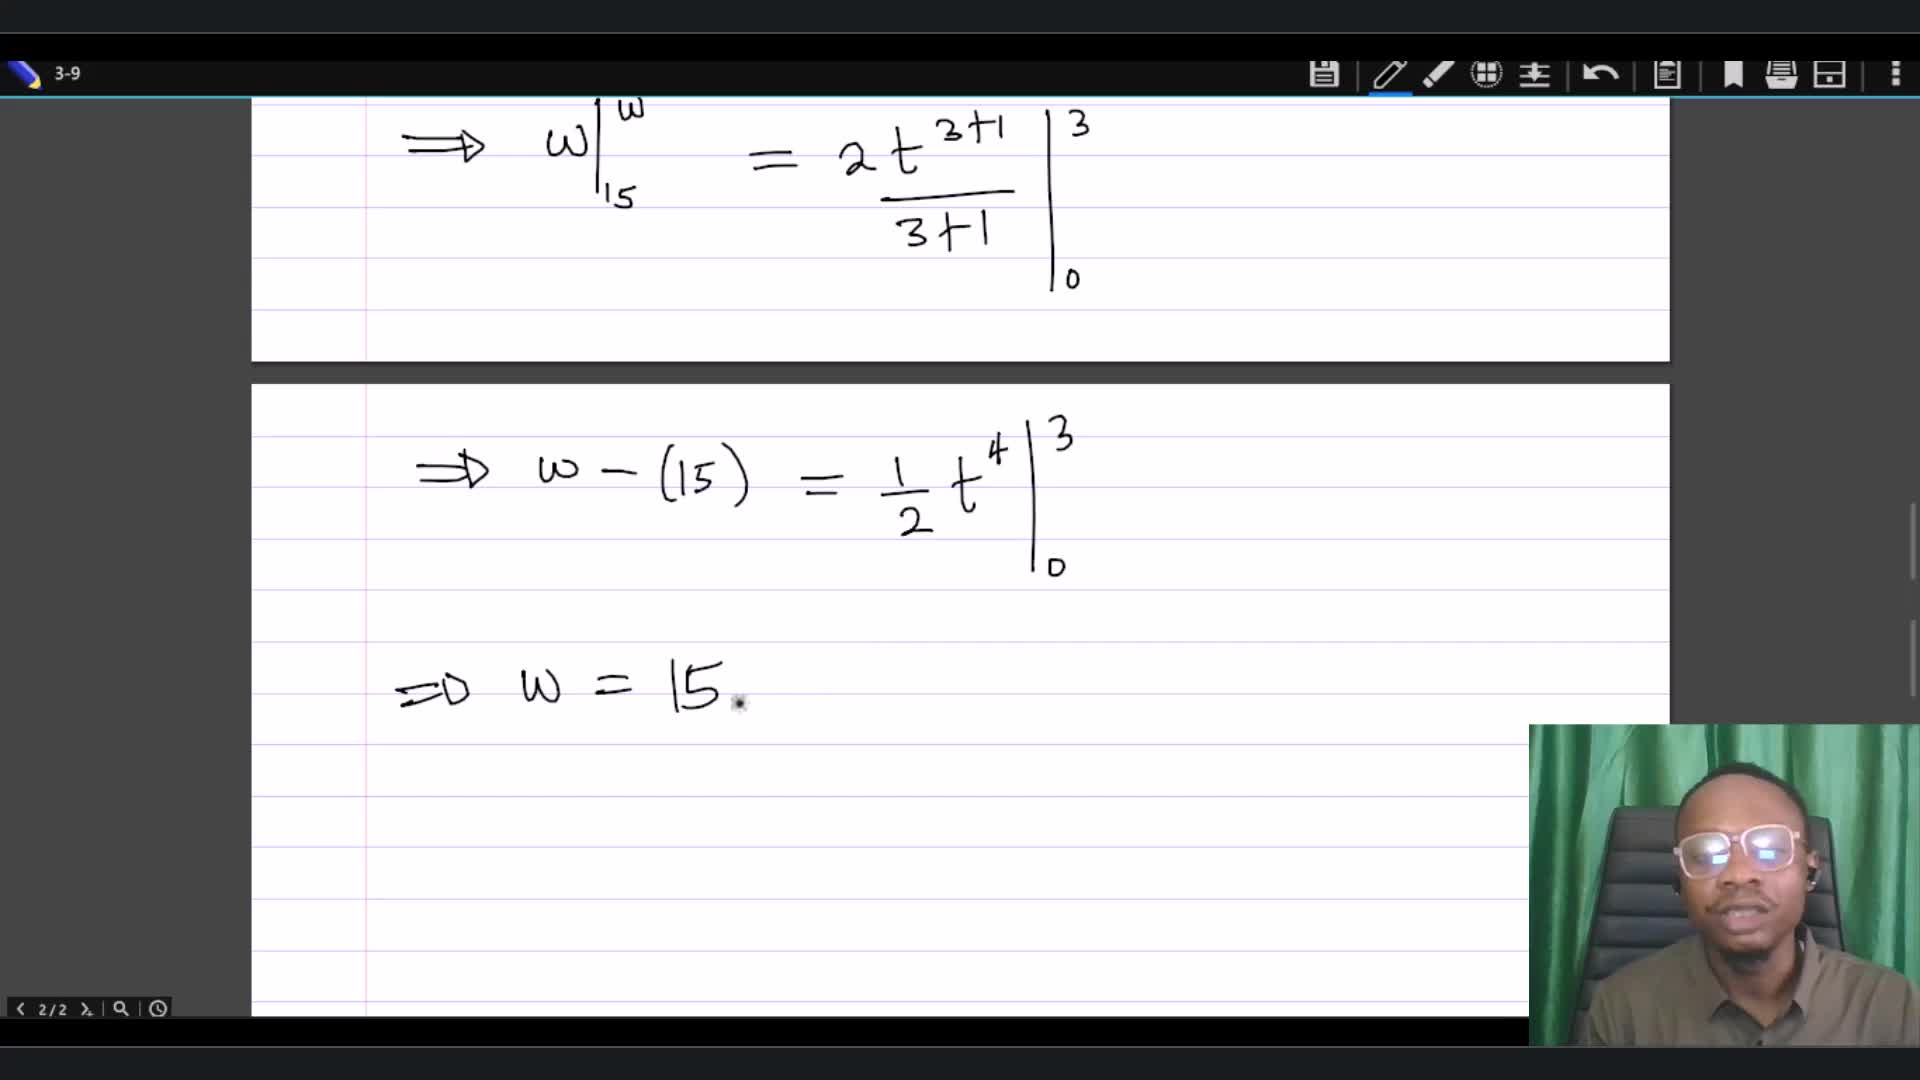 3-9
⇒ w|₁₅ʷ = 2 t³⁺¹/3+1 |₀³
⇒ w − (15) = 1/2 t⁴ |₀³
⇒ w = 15
2/2